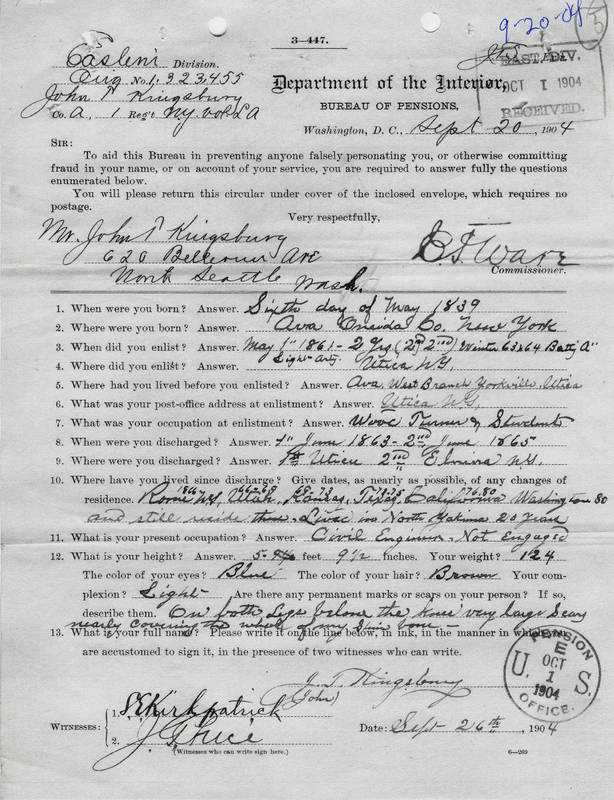 9-20-04
5
3—447.
Eastern Division.
Orig No. 1,323,455
John T Kingsbury
Co. A, 1 Reg't NY. Vol. L A
EAST. DIV.
OCT 1 1904
RECEIVED.
Department of the Interior,
BUREAU OF PENSIONS,
Washington, D. C., Sept 20, 1904
SIR:
To aid this Bureau in preventing anyone falsely personating you, or otherwise committing
fraud in your name, or on account of your service, you are required to answer fully the questions
enumerated below.
You will please return this circular under cover of the inclosed envelope, which requires no
postage.
Very respectfully,
Mr. John T Kingsbury
620 Ave
North Seattle
Wash.
E. F. Ware
Commissioner.
1. When were you born? Answer. Sixth day of May 1839
2. Where were you born? Answer. Ava Oneida Co. New York
3. When did you enlist? Answer. May 1st 1861 - 2 yrs (2nd) Winter 63x64 Batty "A"
Light Arty.
4. Where did you enlist? Answer. Utica NY.
5. Where had you lived before you enlisted? Answer. Ava, West Branch Yorkville, Utica
6. What was your post-office address at enlistment? Answer. Utica NY.
7. What was your occupation at enlistment? Answer. Wood Turner & Student
8. When were you discharged? Answer. 1st June 1863 - 2nd June 1865
9. Where were you discharged? Answer. 1st Utica 2nd Elmira NY.
10. Where have you lived since discharge? Give dates, as nearly as possible, of any changes of
residence. Rome NY, Utah, Kansas, Texas, California Washington 80
and still reside there. Lived in North Yakima 20 Years
11. What is your present occupation? Answer. Civil Engineer - Not Engaged
12. What is your height? Answer. 5 feet 9½ inches. Your weight? 124
The color of your eyes? Blue The color of your hair? Brown Your com-
plexion? Light Are there any permanent marks or scars on your person? If so,
describe them. On both Legs below the Knee very large Scars
nearly covering the whole of my Shin bone -
13. What is your full name? Please write it on the line below, in ink, in the manner in which you
are accustomed to sign it, in the presence of two witnesses who can write.
J. T. Kingsbury
(John)
WITNESSES: 1. S E Kirkpatrick
2. J
(Witnesses who can write sign here.)
Date: Sept 26th, 1904
6—269
U. S. PENSION OFFICE.
OCT 1 1904